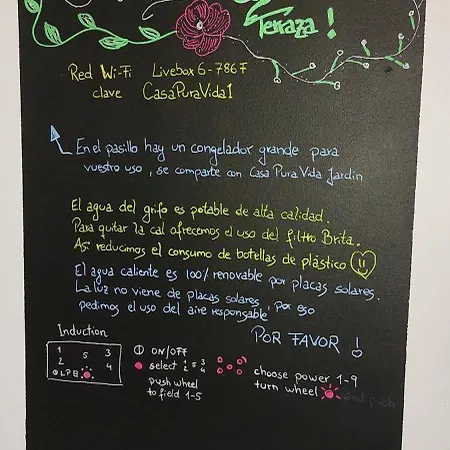 Terraza!
Red Wi-Fi Livebox6-786F
clave CasaPuraVida1
En el pasillo hay un congelador grande para
vuestro uso, se comparte con Casa Pura Vida Jardín
El agua del grifo es potable de alta calidad.
Para quitar la cal ofrecemos el uso del filtro Brita.
Así reducimos el consumo de botellas de plástico
El agua caliente es 100% renovable por placas solares.
La luz no viene de placas solares, por eso
pedimos el uso del aire responsable
POR FAVOR!
Induction
1 5 3
2 4
ON/OFF
select 1 2 5 3 4
push wheel
to field 1-5
choose power 1-9
turn wheel and push